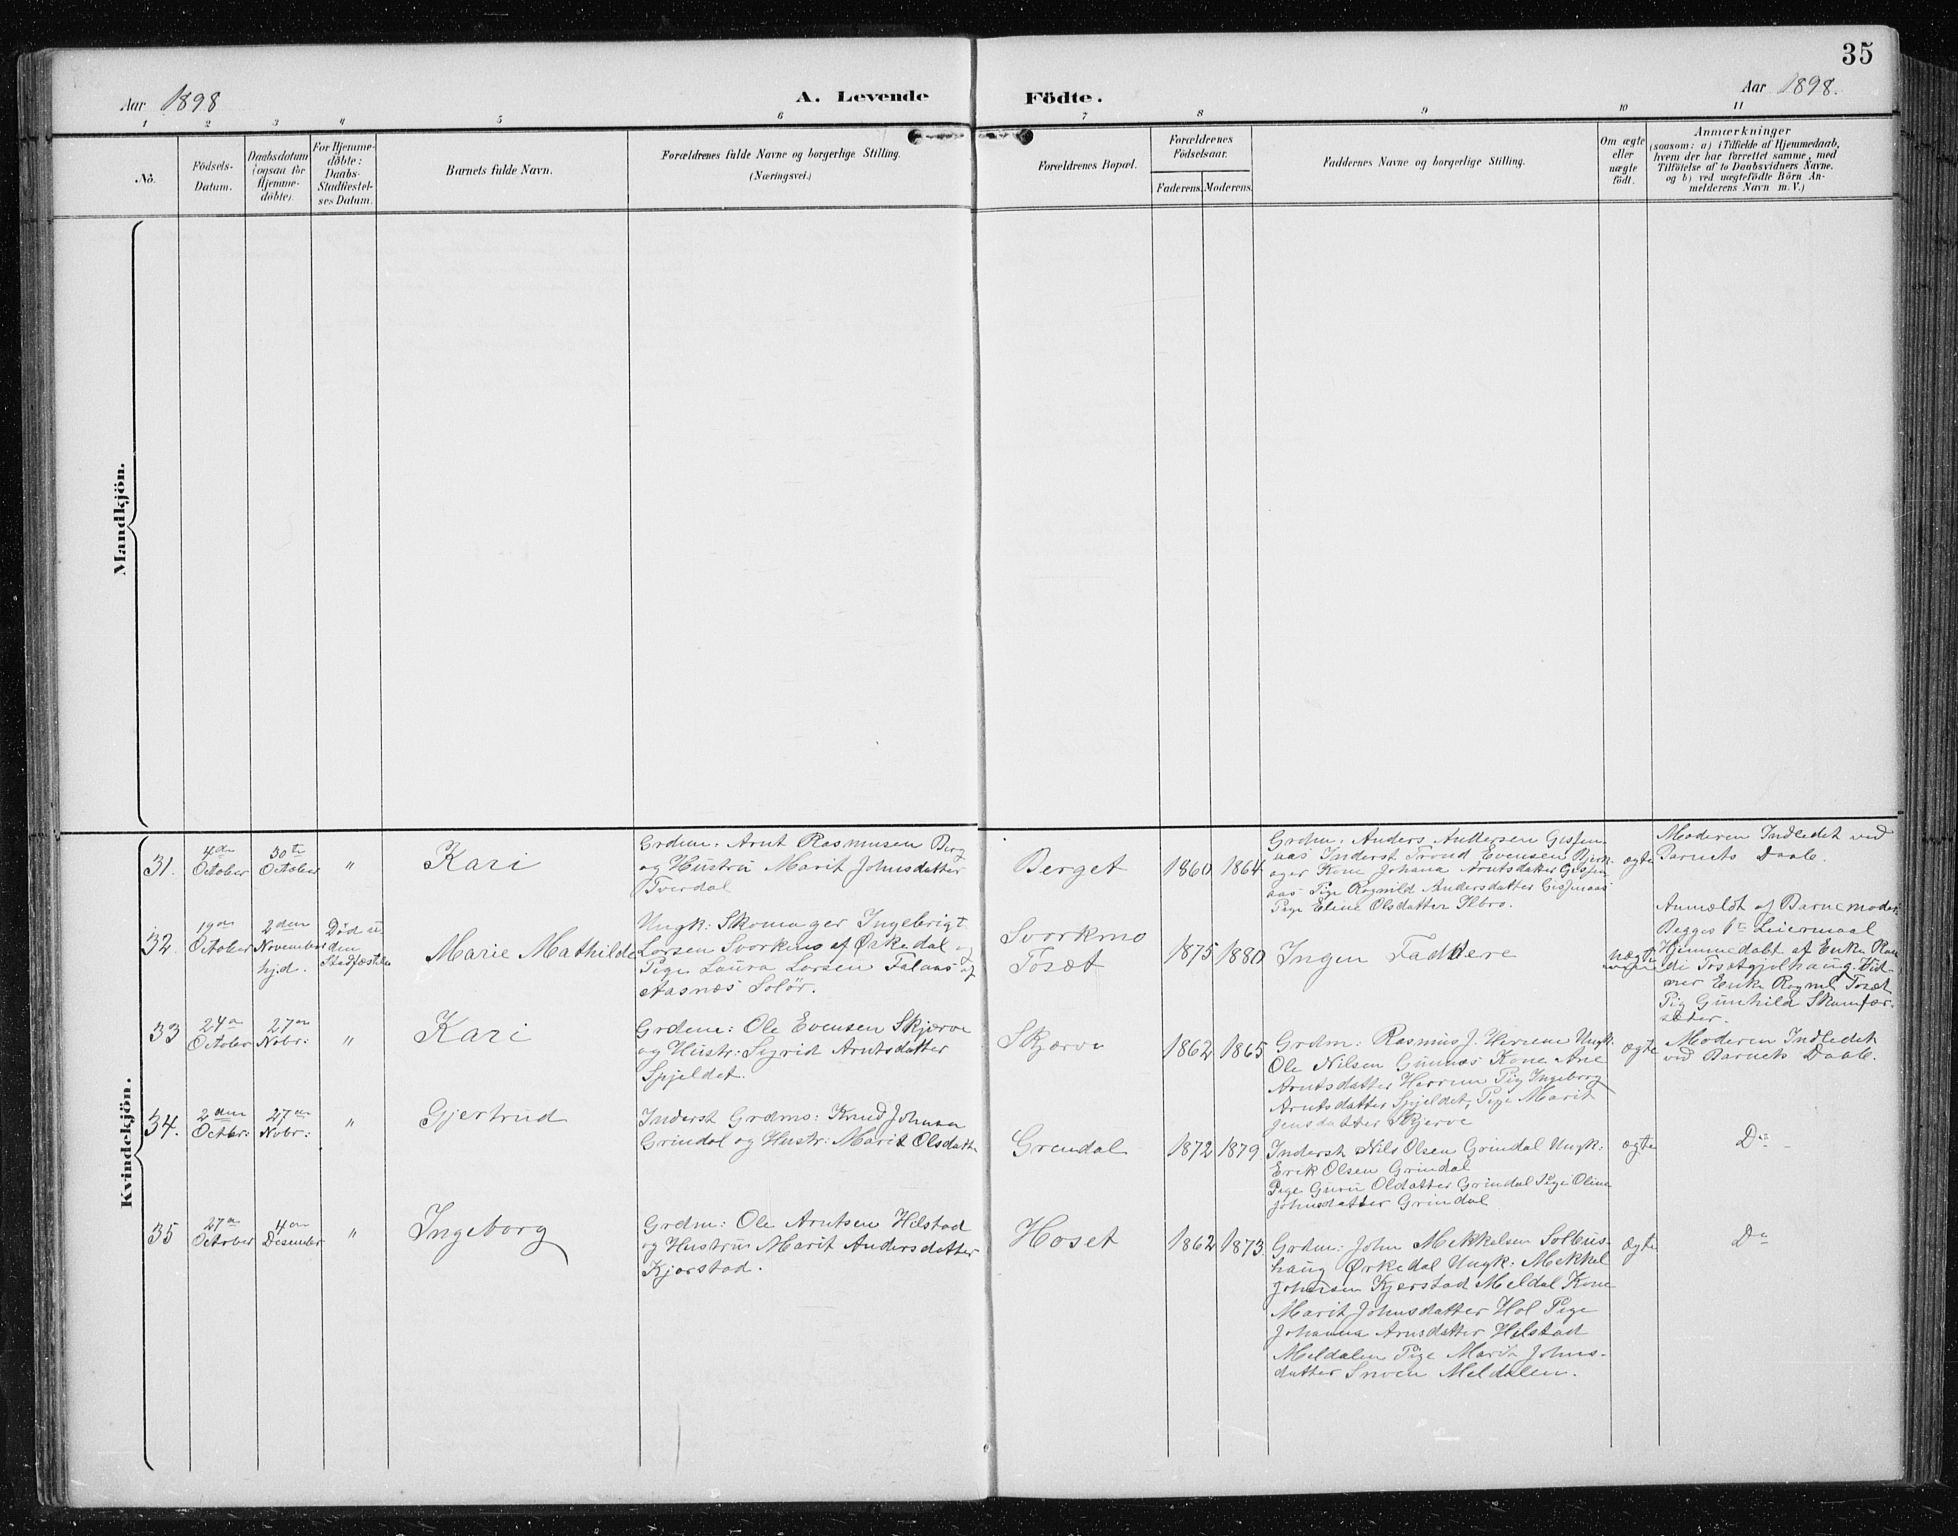 35
Aar 1898
A. Levende
Födte.
Aar 1898.
1 2 3 4 5 6 7 8 9 10 11
No.
Födsels-
Datum.
Daabsdatum
(ogsaa for
Hjemme-
döbte).
For Hjemme-
döbte:
Daabs-
Stadfæstel-
ses Datum.
Barnets fulde Navn.
Forældrenes fulde Navne og borgerlige Stilling.
(Næringsvei.)
Forældrenes Bopæl.
Forældrenes
Födselsaar.
Faderens.
Moderens.
Faddernes Navne og borgerlige Stilling.
Om ægte
eller
uægte
født.
Anmærkninger
(saasom: a) i Tilfælde af Hjemmedaab,
hvem der har forrettet samme, med
Tilföielse af to Daabsvidners Navne,
og b) ved uægtefödte Börn An-
melderens Navn m. V.)
Mandkjön.
Kvindekjön.
31.
4de
October
30te
October
"
Kari
Grdm: Arnt Rasmusen Berg
og Hustru Marit Johnsdatter
Tverdal
Berget
1860
1864
Grdm: Anders Andersen Gisjen
aas Inderst Trond Evensen Bjerk
ager Kone Johana Arntsdatter Gisjen
aas Pige Ragnild Andersdatter Gisjenaas
Pige Eline Olsdatter Ilbro.
ægte
Moderen Indledet ved
Barnets Daab.
32.
19de
October
2den
November
hjd.
Død u
den
Stadfæstelse
Marie Mathilde
Ungk: Skomager Ingebrigt
Larsen Svorkmo af Ørkedal og
Pige Laura Larsen Falaas af
Aasnæs Solör.
Svorkmo
Tosæt
1875
1880
Ingen Faddere
uægte
Anmældt af Barnemoder
Begges 1te Leiermaal
Hjemmedøbt af Enke Ran
di Tosætgjelhaug. Vid-
ner Enke Ragnil Tosæt
Pig Gunhild Skamfer-
sæter.
33
24de
October
27de
Nobr:
"
Kari
Grdm: Ole Evensen Skjærve
og Hustr: Sigrid Arntsdatter
Spjeldet.
Skjærve
1862
1865
Grdm: Rasmus J. Herrem Ungk:
Ole Nilsen Gunnæs Kone Ane
Arntsdatter Herrem Pig Ingeborg
Arntsdatter Spjeldet, Pige Marit
Jensdatter Skjerve
ægte
Moderen Indledet
ved Barnets Daab.
34.
2den
Octbr:
27de
Nobr:
"
Gjertrud
Inderst Grdms: Knud Johnsen
Grindal og Hustr: Marit Olsdatter
Grendal
1872
1879
Inderst Nils Olsen Grindal Ungk:
Erik Olsen Grindal
Pige Guru Oldatter Grindal Pige Oline
Johnsdatter Grindal
ægte
Do
35
27de
October
4de
Desember
"
Ingeborg
Grdm: Ole Arntsen Hilstad
og Hustru Marit Andersdatter
Kjorstad.
Hoset
1862
1873.
Grdm: John Mekkelsen Solbus-
haug Ørkedal Ungk: Mekkel
Johnsen Kjerstad Meldal Kone
Marit Johnsdatter Hol Pige
Johanna Arnsdatter Hilstad
Meldalen Pige Marit Johns-
datter Snoen Meldalen.
ægte
Do